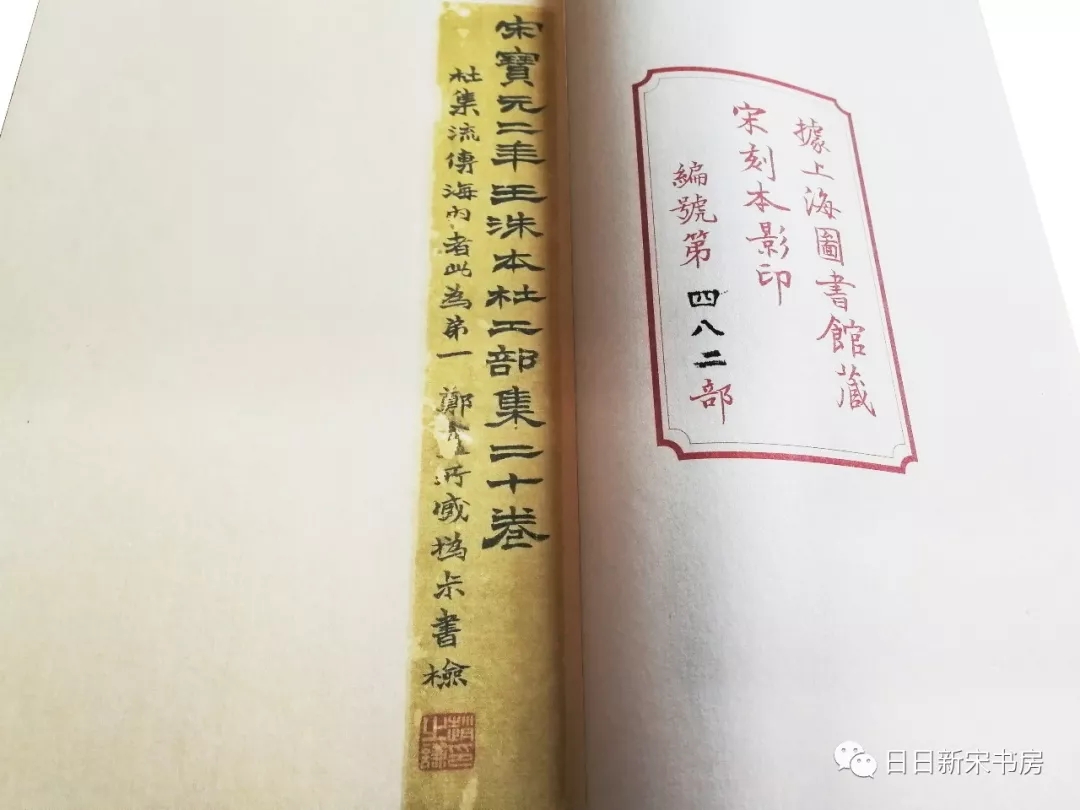 據上海圖書館藏
宋刻本影印
編號第四八二部
宋寶元二年王洙本杜工部集二十卷
杜集流傳海內者此為弟一 鄭盦所臧撝尗書檢
趙印之謙
日日新宋书房